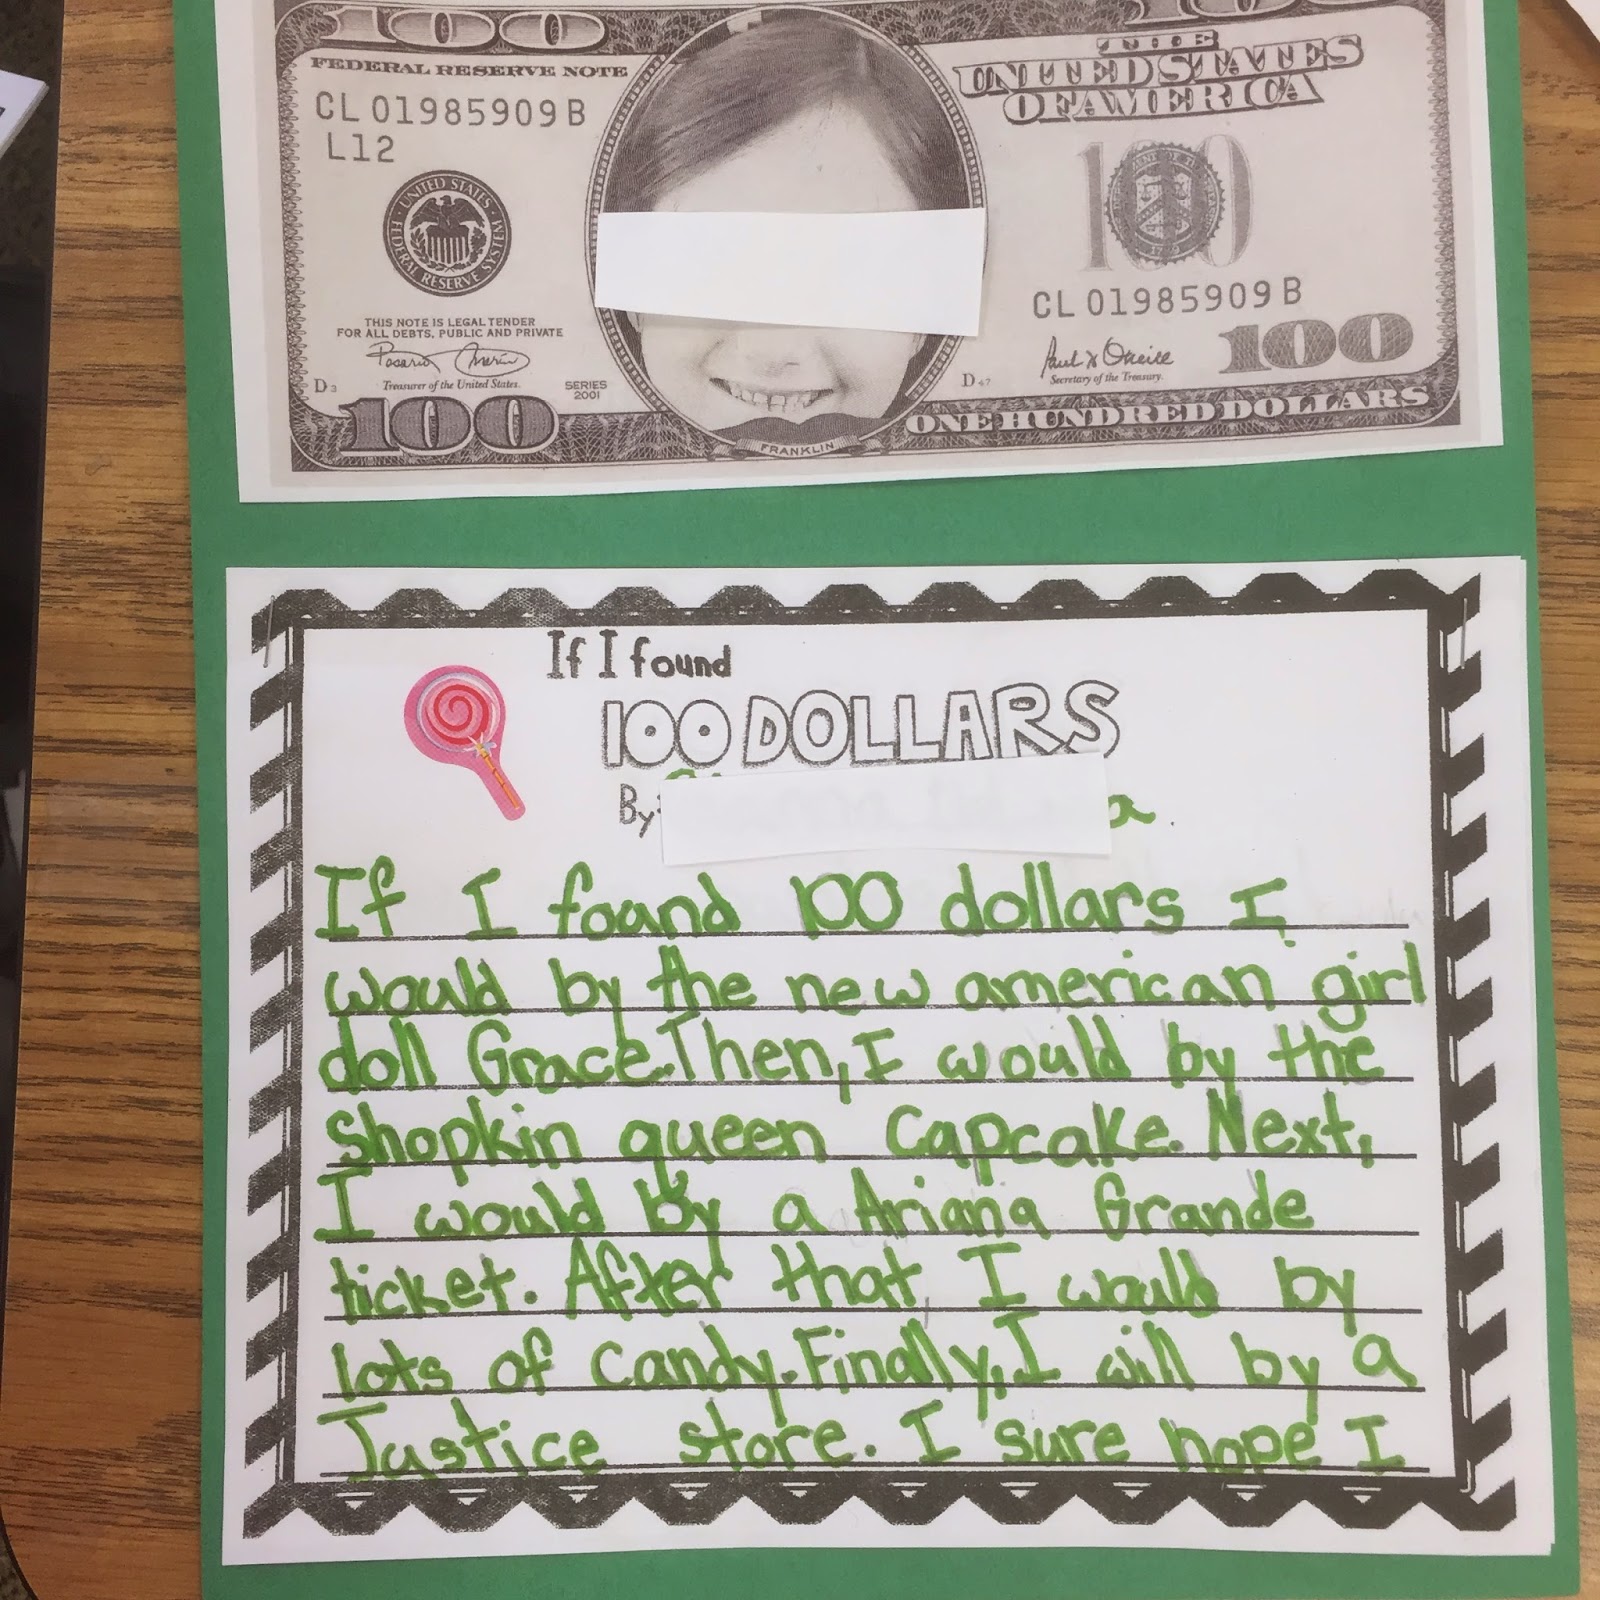 100 100
FEDERAL RESERVE NOTE
THE
UNITED STATES
OF AMERICA
CL 01985909 B
L12
100
UNITED STATES FEDERAL RESERVE SYSTEM
CL 01985909 B
THIS NOTE IS LEGAL TENDER
FOR ALL DEBTS, PUBLIC AND PRIVATE
Treasurer of the United States.
SERIES
2001
Paul H O'Neill
Secretary of the Treasury.
D3
D47
100
100
FRANKLIN
ONE HUNDRED DOLLARS
If I found
100 DOLLARS
By:
If I found 100 dollars I
would by the new american girl
doll Grace. Then, I would by the
Shopkin queen Capcake. Next,
I would by a Ariana Grande
ticket. After that, I would by
lots of candy. Finally, I will by a
Justice store. I sure hope I